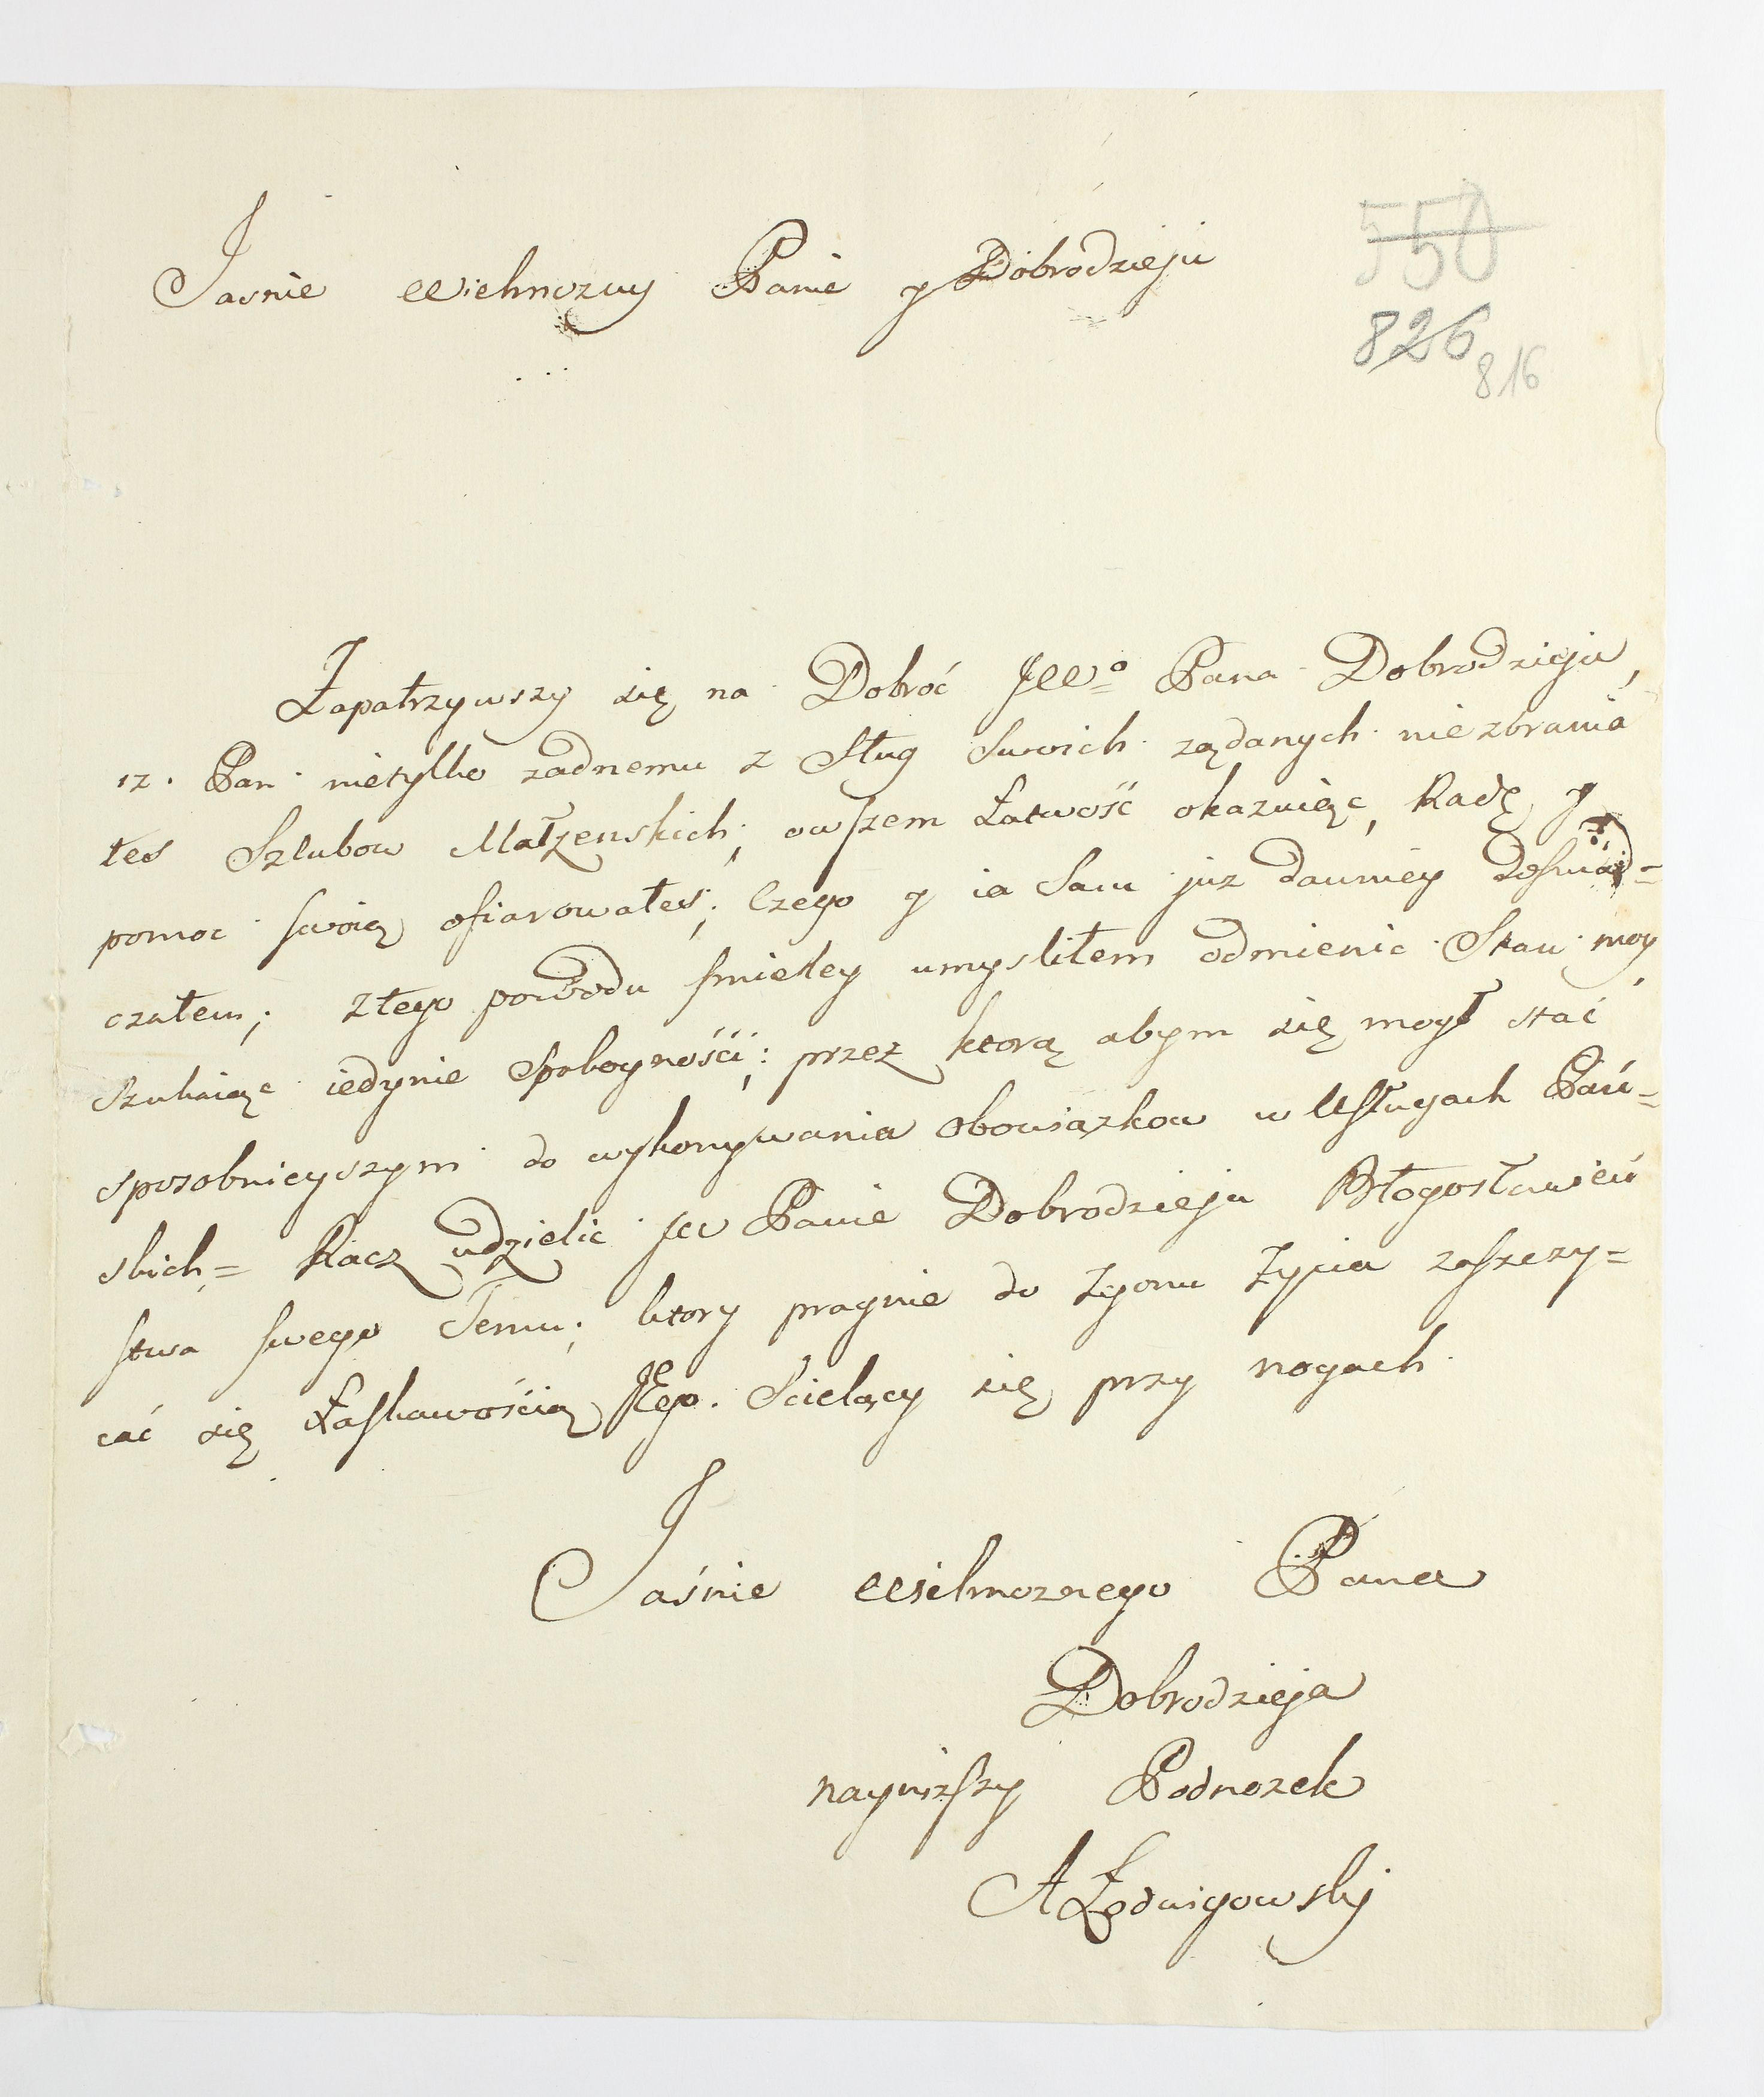 Jasnie Wielmozny Panie y Dobrodzieju
550
826
816
Zapatrzywszy się na Dobroć JWo Pana Dobrodzieja,
iz Pan nietylko zadnemu z Sług Swoich ządanych niezbrania
łes Szlubow Małzenskich; owszem Łatwość okazuiąc, Radę y
pomoc swoią ofiarowałes; Czego y ia Sam już dawniey Doświad=
czałem; Ztego powodu smieley umysliłem odmienic Stan moy,
Szukaiąc iedynie Spokoyności; przez ktorą abym się mogł stać
sposobnieyszym do wykonywania Obowiązkow w Usługach Pań=
skich= Racz udzielic JW Panie Dobrodzieju Błogosławień
stwa swego Temu; ktory pragnie do Zgonu Zycia zaszczy=
cać się Łaskawością JEgo. Scielący się przy nogach
Jaśnie Wielmoznego Pana
Dobrodzieja
nayniższy Podnozek